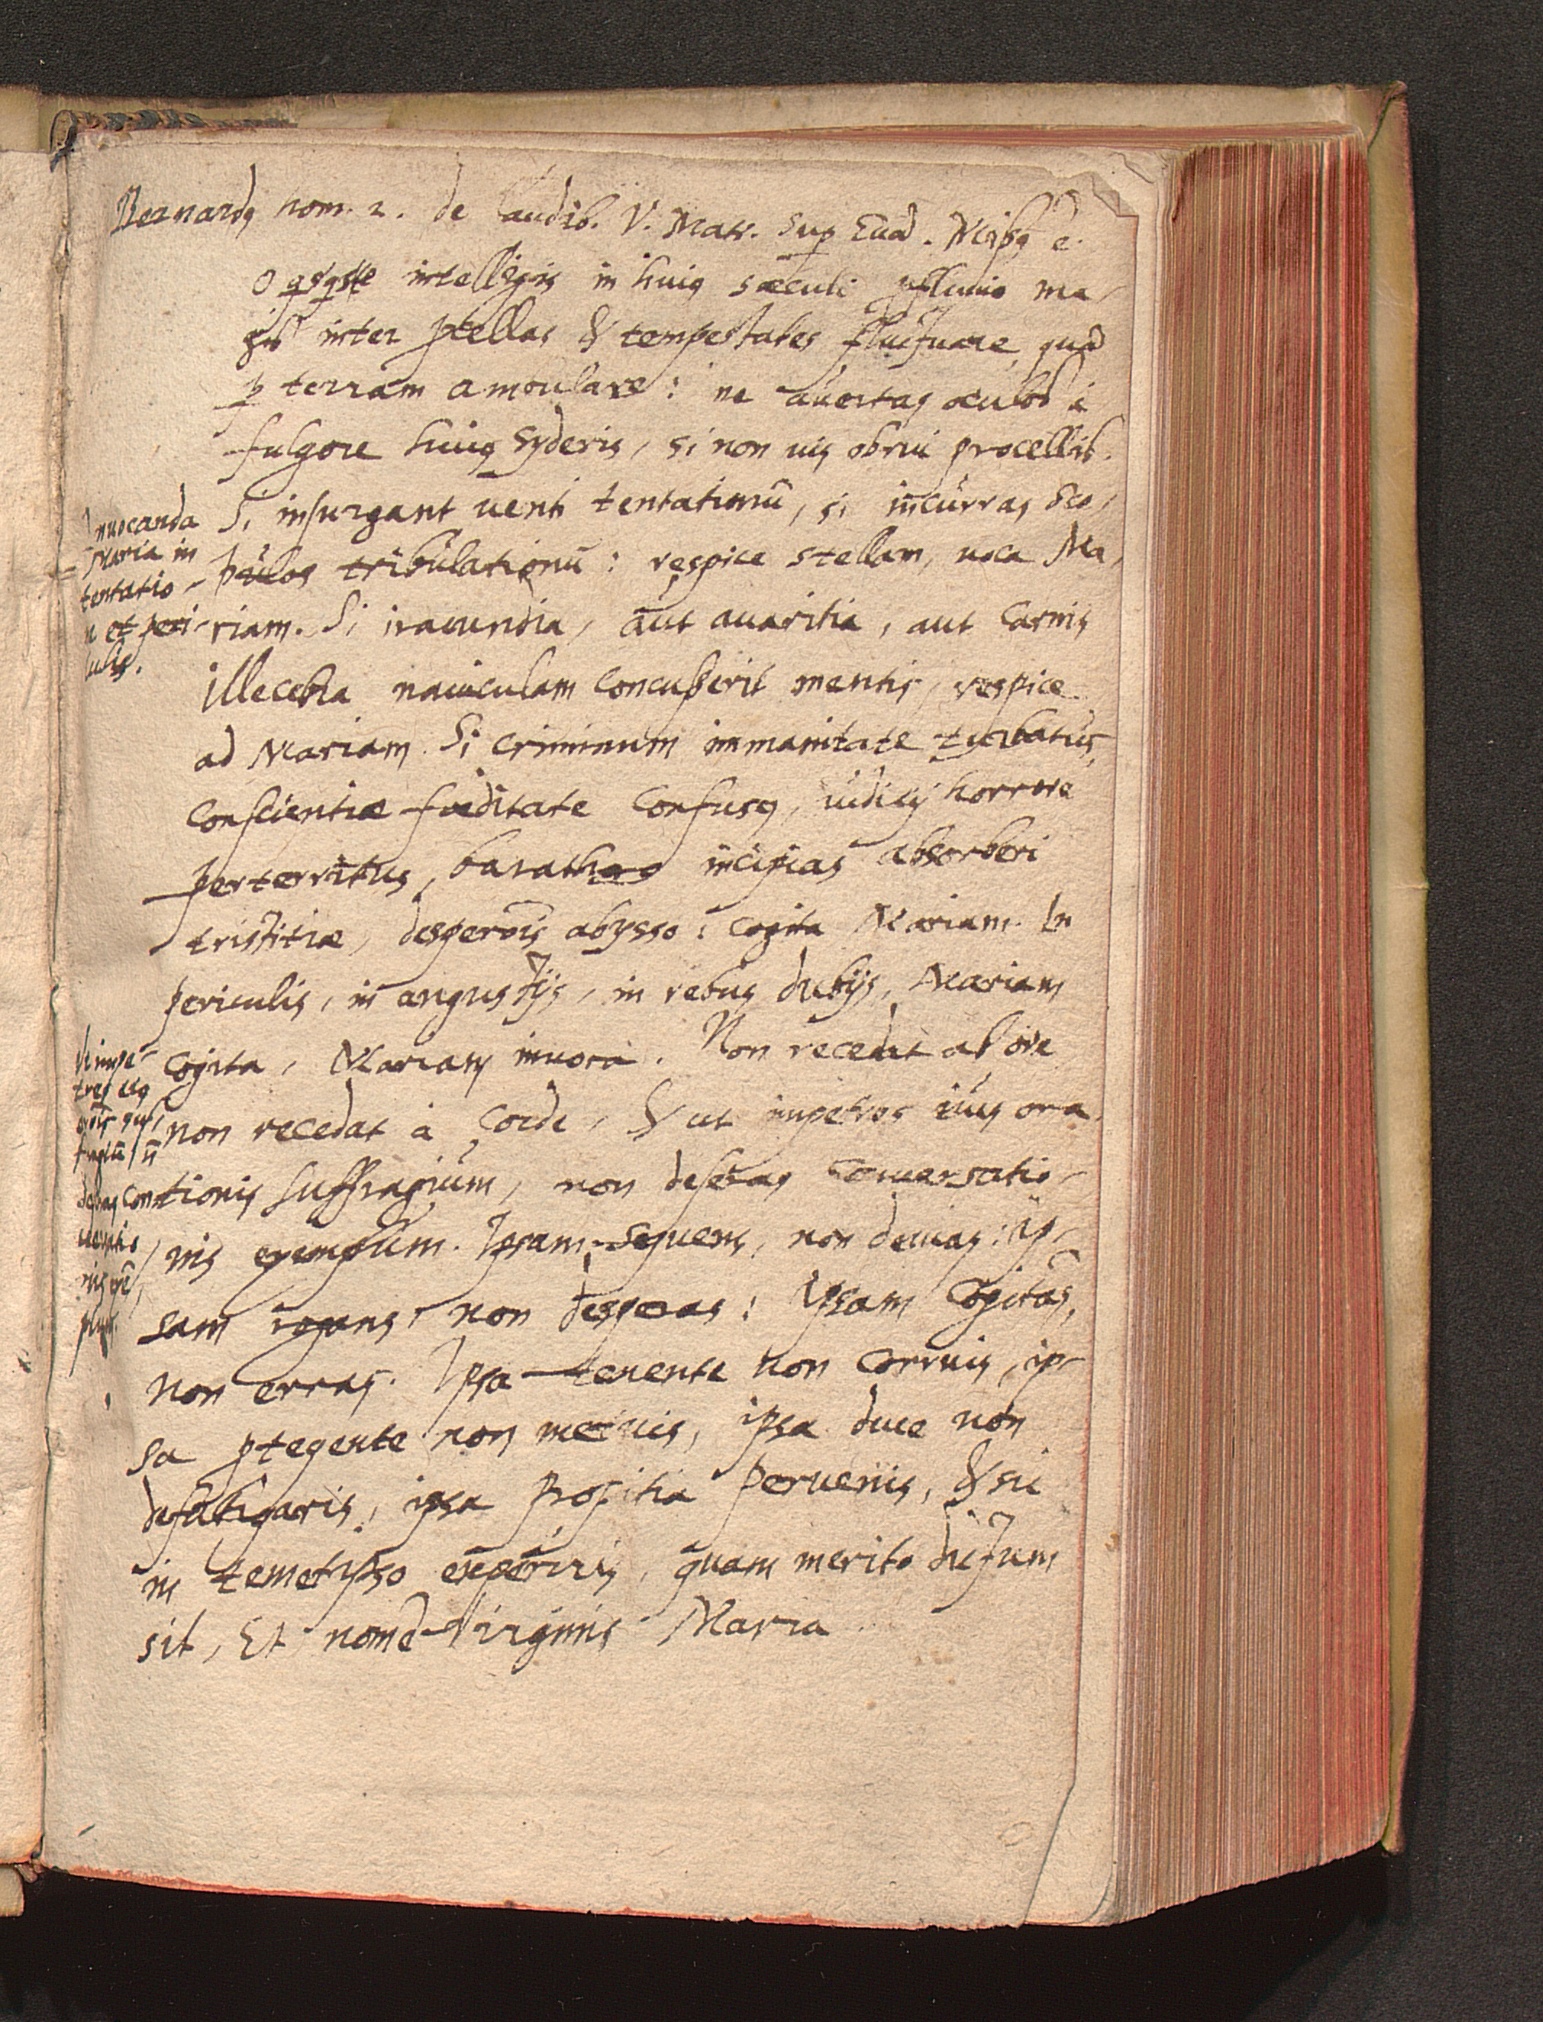 Bernardꝰ hom. 2. de laudib. V. Matr. sup Euā. Missꝰ ē.
O intelligis in huiꝰ sæculi ꝓfluuio ma-
gis inter ꝓcellas & tempestates fluctuare, quā
ꝑ terram ambulare: ne auertas oculos à
fulgore huiꝰ syderis, si non uis obrui procellis.
Si insurgant uenti tentationū, si incurras sco-
pulos tribulationū: respice stellam, uoca Ma-
riam. Si iracundia, aut auaritia, aut carnis
illecebra nauiculam concusserit mentis, respice
ad Mariam. Si criminum immanitate turbatus,
conscientiæ fœditate confusꝰ, iudicij horrore
perterritus, barathro incipias absorberi
tristitiæ, desperōis abysso: cogita Mariam. In
periculis, in angustijs, in rebus dubijs, Mariam
cogita, Mariam inuoca. Non recedat ab ore
non recedat à corde, & ut impetres eius ora-
tionis suffragium, non deseras conuersatio-
nis exemplum. Ipsam sequens, non deuias: ip-
sam rogans, non desperas: Ipsam cogitās,
non erras. Ipsa tenente non corruis, ip-
sa ꝓtegente non metuis, ipsa duce non
defatigaris, ipsa propitia peruenis, & sic
in temetipso experiris, quam merito dictum
sit, Et nomē Virginis Maria
Inuocanda
Maria in
tentatio-
ne et peri-
culis.
Vt impe-
tres eiꝰ
orōis suf-
fragiū, nō
deseras con-
uersatio-
nis exē-
plum.